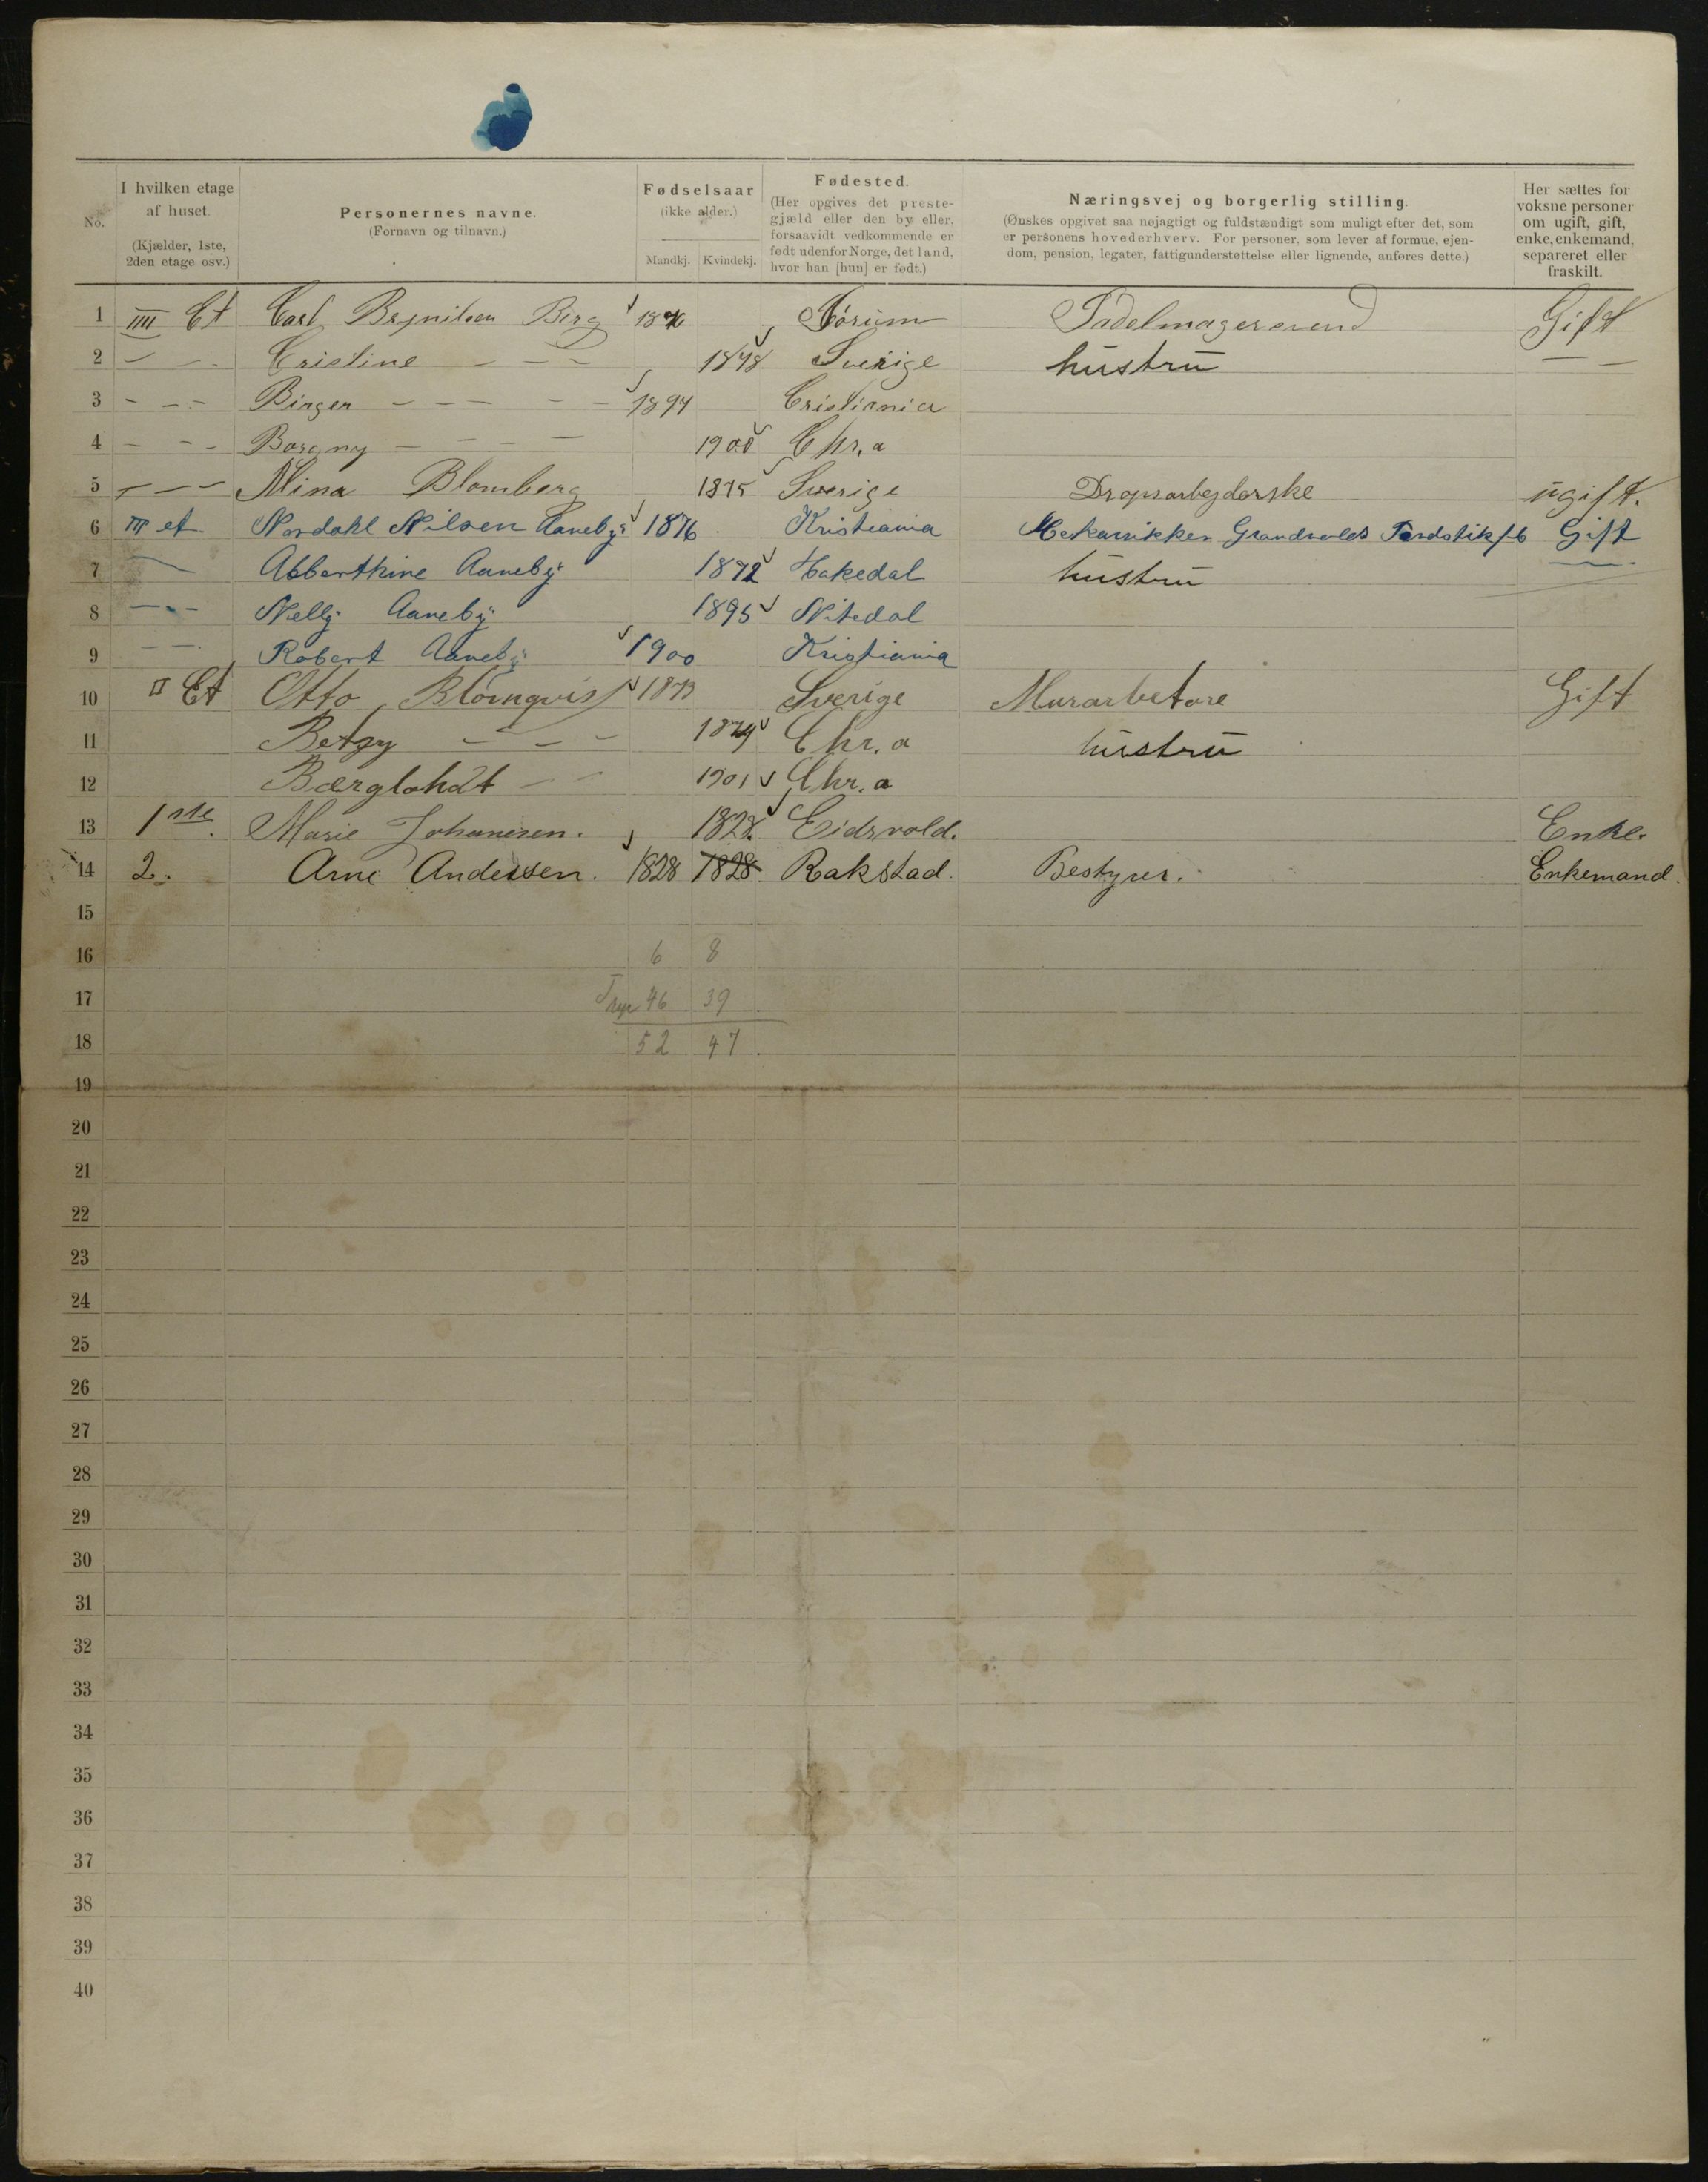 No.
I hvilken etage af huset. (Kjælder, 1ste, 2den etage osv.)
Personernes navne. (Fornavn og tilnavn.)
Fødselsaar (ikke alder.) Mandkj. Kvindekj.
Fødested. (Her opgives det prestegjæld eller den by eller, forsaavidt vedkommende er født udenfor Norge, det land, hvor han [hun] er født.)
Næringsvej og borgerlig stilling. (Ønskes opgivet saa nøjagtigt og fuldstændigt som muligt efter det, som er persønens hovederhverv. For personer, som lever af formue, ejendom, pension, legater, fattigunderstøttelse eller lignende, anføres dette.)
Her sættes for voksne personer om ugift, gift, enke, enkemand, separeret eller fraskilt.
1 IIII Et Carl Brynilsen Berg Sørum Sadelmagersvend Gift
2 – – Cristine – – – Sverige hustru – –
3 – – – Birger – – – – – 1894 Cristiania
4 – – – Borgny – – – – 1900 Chr.a
5 – – – Alina Blomberg 1875 Sverige Dropsarbejderske ugift.
6 III et Nordahl Nilsen Aaneby 1876 Kristiania Mekanikker Grandvolds Gift
7 – Abberthine Aaneby 1872 Hakedal hustru —
8 – – – Nelly Aaneby 1895 Nitedal
9 – – Robert Aaneby 1900 Kristiania
10 II Et Otto Blomqvist 1873 Sverige Murarbetare Gift
11 Betzy – – – Chr.a hustru
12 – – 1901 Chr.a
13 1ste. Marie Johanesen. 1828. Eidsvold. Enke.
14 2. Arne Andersen. 1828 1828 Rakstad. Bestyrer. Enkemand.
15
16 6 8
17 46 39
18 52 47
19
20
21
22
23
24
25
26
27
28
29
30
31
32
33
34
35
36
37
38
39
40